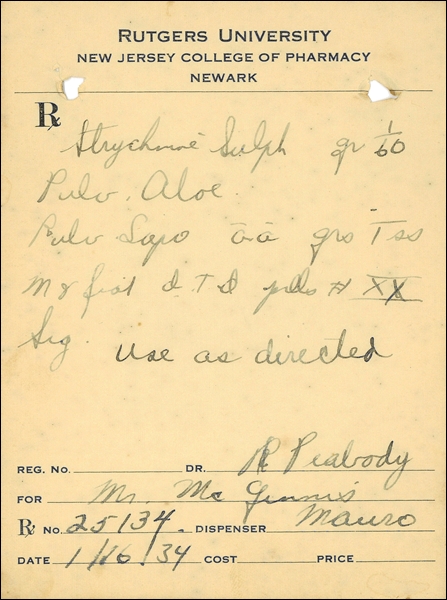 RUTGERS UNIVERSITY
NEW JERSEY COLLEGE OF PHARMACY
NEWARK
℞
Strychnine Sulph gr 1/60
Pulv. Aloe
Pulv Sapo āā grs Tss
M & fiat D. T. D pills # XX
Sig. Use as directed
REG. NO. DR. R Peabody
FOR Mr. Mc Ginnis
℞ NO. 25134. DISPENSER Mauro
DATE 1/16/34 COST PRICE